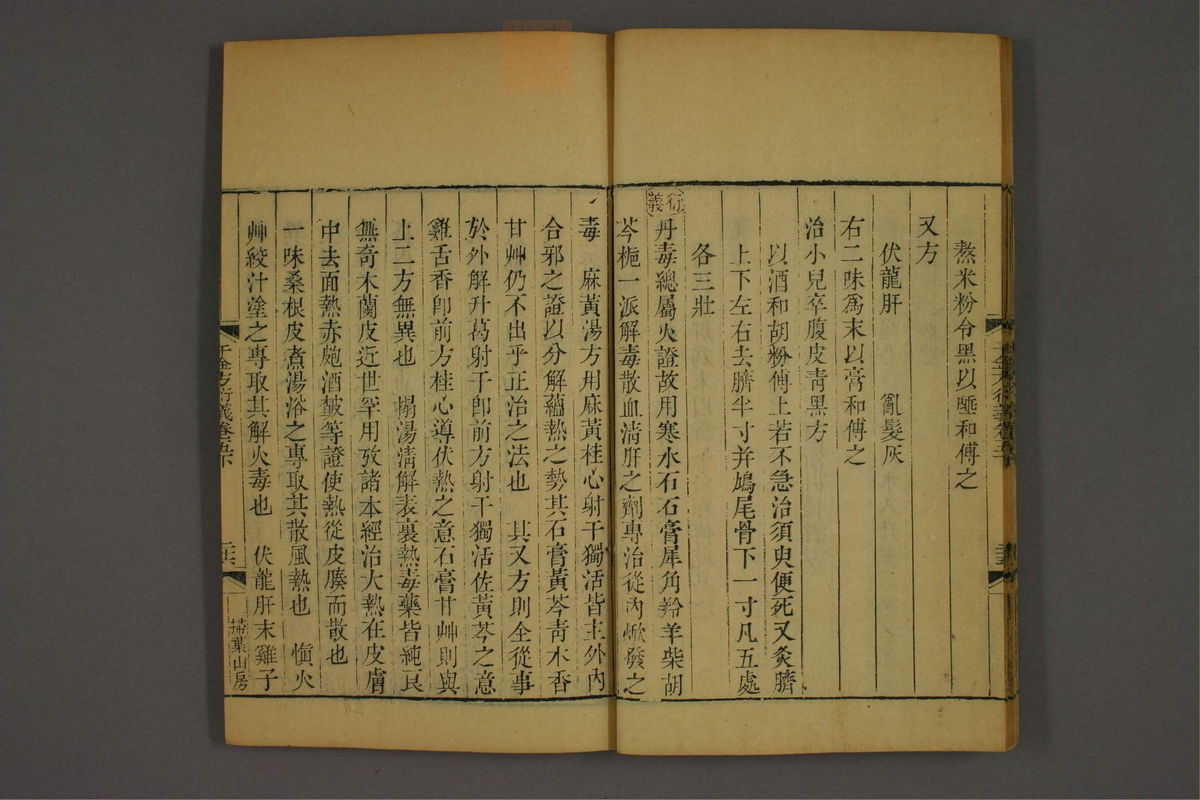 熬米粉令黑以唾和傅之
又方
伏龍肝 亂髮灰
右二味爲末以膏和傅之
治小兒卒腹皮靑黑方
以酒和胡粉傅上若不急治須臾便死又灸臍
上下左右去臍半寸并鳩尾骨下一寸凡五處
各三壯
衍義
丹毒總屬火證故用寒水石石膏犀角羚羊柴胡
芩梔一派解毒散血淸肝之劑專治從內焮發之
毒 麻黃湯方用麻黃桂心射干獨活皆主外內
合邪之證以分解蘊熱之勢其石膏黃芩靑木香
甘艸仍不出乎正治之法也 其又方則全從事
於外解升葛射干卽前方射干獨活佐黃芩之意
雞舌香卽前方桂心導伏熱之意石膏甘艸則與
上二方無異也 搨湯淸解表裏熱毒藥皆純良
無奇木蘭皮近世罕用攷諸本經治大熱在皮膚
中去面熱赤皰酒皶等證使熱從皮腠而散也
一味桑根皮煮湯浴之專取其散風熱也 愼火
艸絞汁塗之專取其解火毒也 伏龍肝末雞子
千金方衍義卷五下
掃葉山房